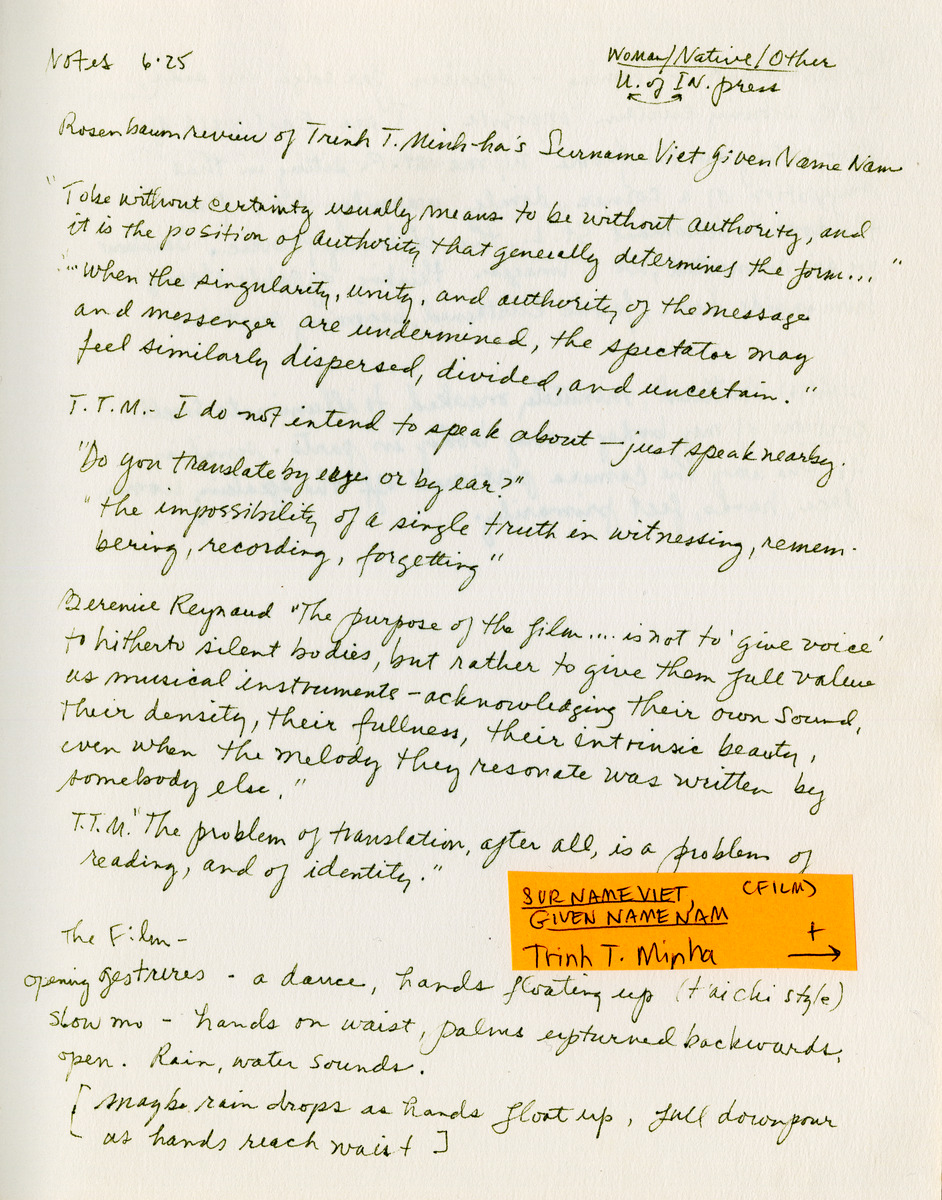 Notes 6·25
Woman/Native/Other
U. of IN. press
Rosenbaum review of Trinh T. Minh-ha's Surname Viet Given Name Nam
"To be without certainty usually means to be without authority, and
it is the position of authority that generally determines the form..."
"'When the singularity, unity, and authority of the message
and messenger are undermined, the spectator may
feel similarly dispersed, divided, and uncertain."
T.T.M.- I do not intend to speak about — just speak nearby.
"Do you translate by eye or by ear?"
"the impossibility of a single truth in witnessing, remem-
bering, recording, forgetting"
Berenice Reynaud "The purpose of the film.... is not to 'give voice'
to hitherto silent bodies, but rather to give them full value
as musical instruments - acknowledging their own sound,
their density, their fullness, their intrinsic beauty,
even when the melody they resonate was written by
somebody else."
T.T.M. "The problem of translation, after all, is a problem of
reading, and of identity."
SURNAME VIET, (FILM)
GIVEN NAME NAM
Trinh T. Minha + →
The Film -
opening gestures - a dance, hands floating up (t'ai chi style)
slow mo - hands on waist, palms upturned backwards,
open. Rain, water sounds.
[ maybe rain drops as hands float up, full downpour
as hands reach waist ]